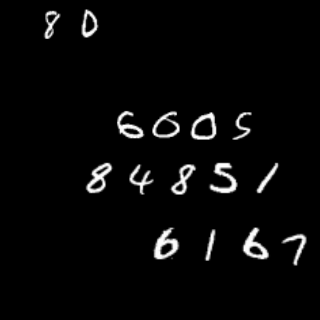 80
6005
84851
6167